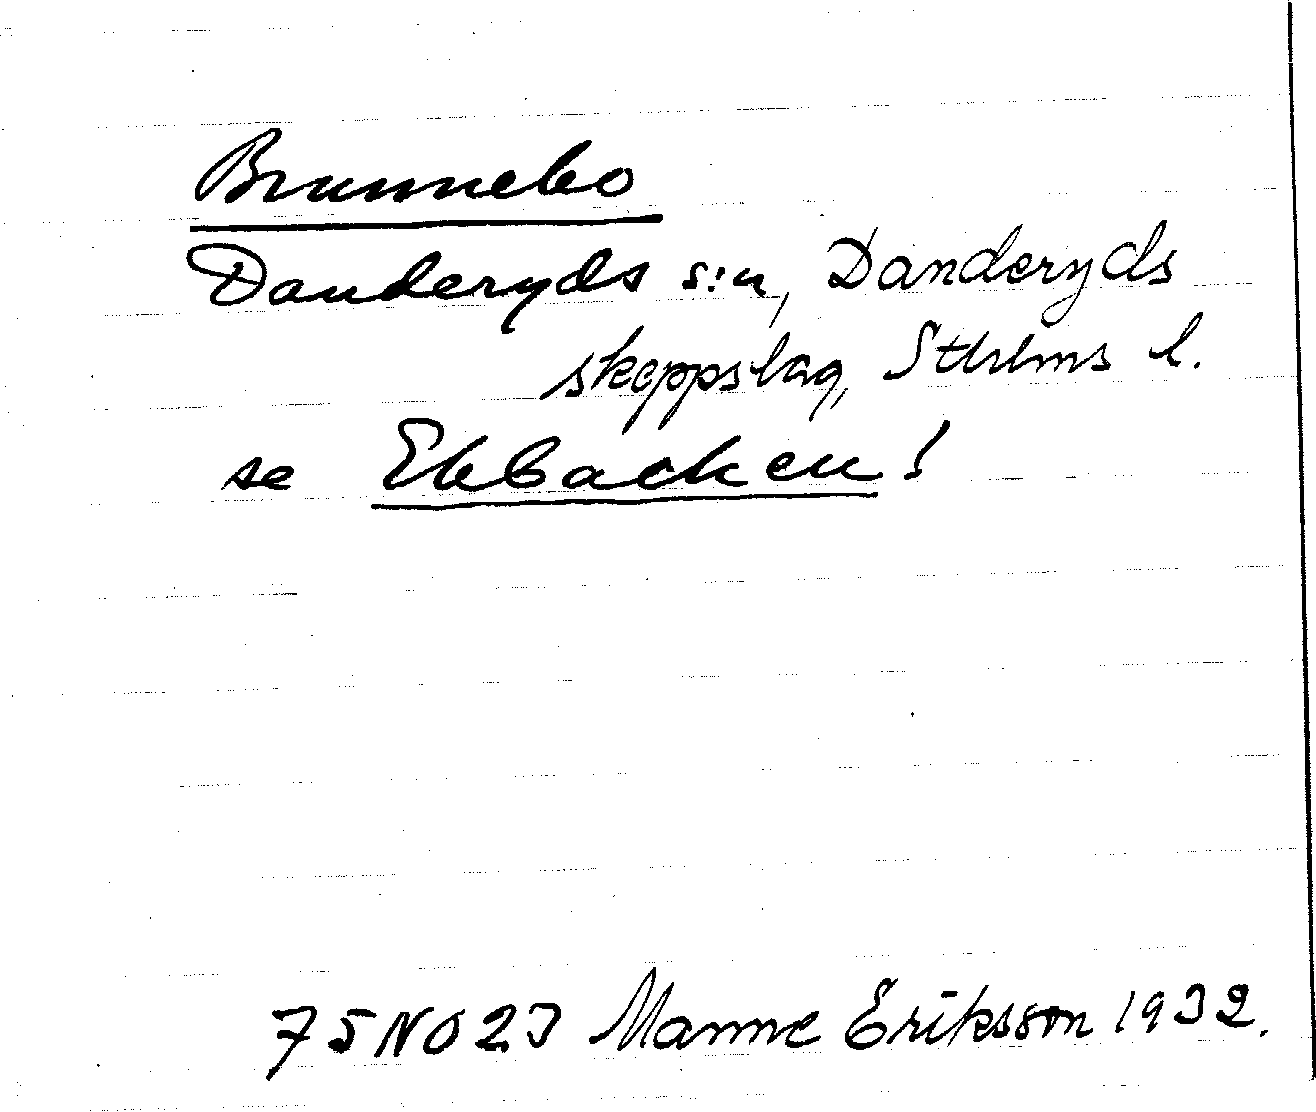 Brunnebo
Danderyds s:n, Danderyds
skeppslag, Sthlms l.
se Ekbacken!
75NO23 Manne Eriksson 1932.